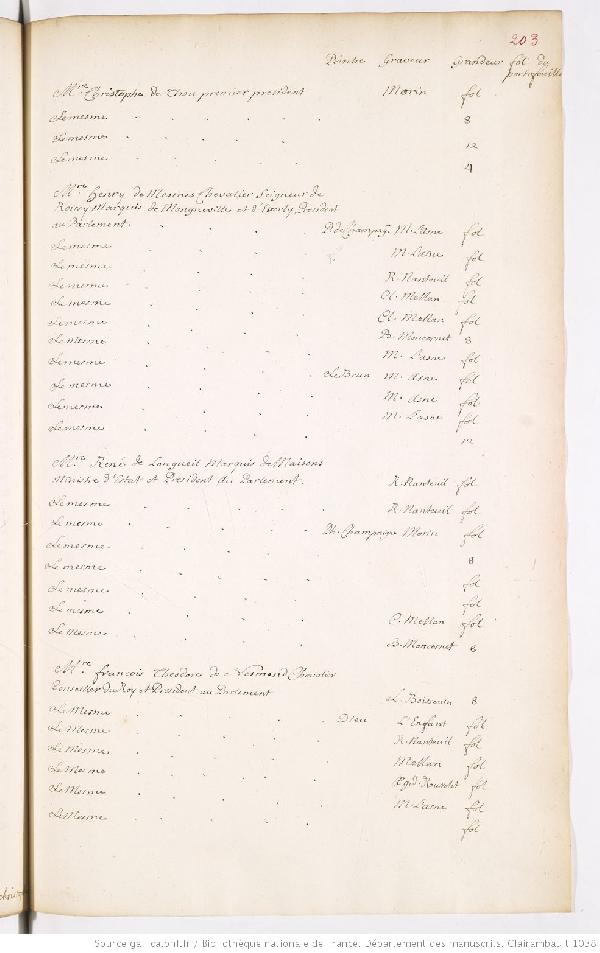 203
Peintre Graveur Grandeur fol. du
portefeuille
M.re Christophe de Thou premier president Morin fol
Le mesme 8
Le mesme 12
Le mesme 4
M.re Henry de Mesmes Chevalier Seigneur de
Roissy Marquis de Mongneville et d'Everly, President
au Parlement. P. de Champag. M. Lasne fol
Le mesme M. Lasne fol
Le mesme R. Nanteuil fol
Le mesme Cl. Mellan fol
Le mesme Cl. Mellan fol
Le mesme B. Moncornet 8
Le Mesme M. Lasne fol
Le mesme Le Brun M. Asne fol
Le mesme M. Asne fol
Le mesme M. Lasne fol
Le mesme 12
M.re René de Longueil Marquis de Maisons
Ministre d'Estat et President du Parlement. R. Nanteuil fol
Le mesme R. Nanteuil fol
Le mesme Ph. Champaigne Morin fol
Le mesme 8
Le mesme fol
Le mesme fol
Le mesme C. Mellan fol
Le Mesme B. Moncornet 8
M.re François Theodore de Nesmond Chevalier
Conseiller du Roy et President au Parlement L. Boissevin 8
Le Mesme Dieu L'Enfant fol
Le Mesme R. Nanteuil fol
Le Mesme Mellan fol
Le Mesme Ægid. Rousselet fol
Le Mesme M. Lasne fol
Le Mesme fol
Source gallica.bnf.fr / Bibliothèque nationale de France. Département des manuscrits. Clairambault 1038